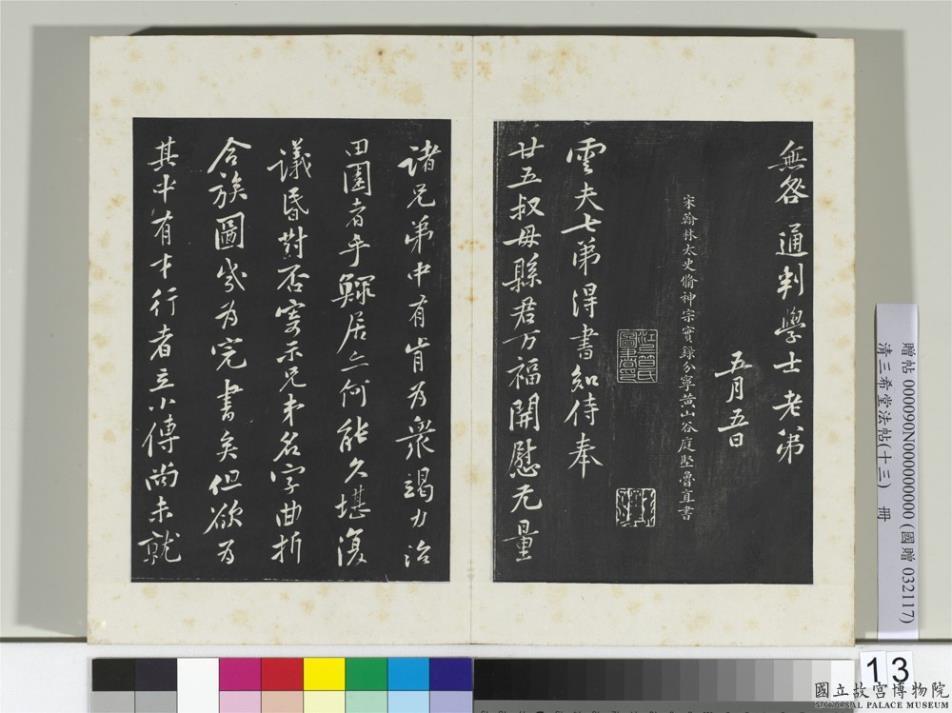 無咎通判學士老弟
五月五日
宋翰林太史脩神宗實錄分寧黃山谷庭堅魯直書
雲夫七弟得書知侍奉
廿五叔母縣君万福開慰无量
諸兄弟中有肯為衆竭力治
田園者乎鰥居亦何能久堪復
議昏對否寄示兄弟名字曲折
合族圖幾為完書矣但欲為
其中有才行者立小傳尚未就
贈帖 000090N000000000 (國贈 032117)
清三希堂法帖(十三) 冊
13
國立故宮博物院
NATIONAL PALACE MUSEUM